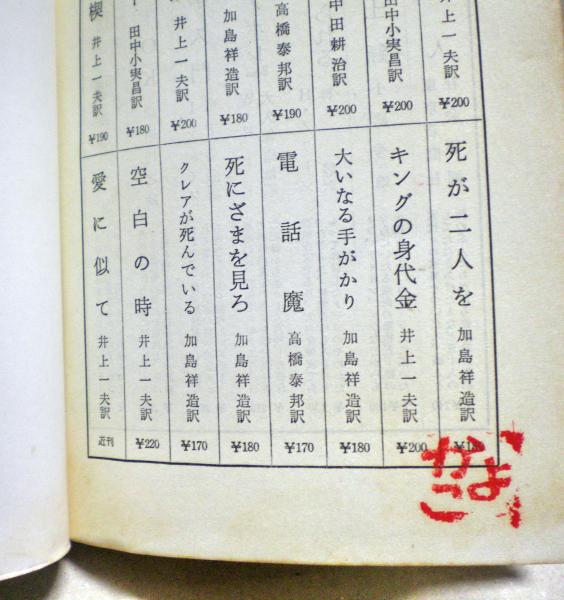 井上一夫訳 ¥200
田中小実昌訳 ¥200
中田耕治訳 ¥200
高橋泰邦訳 ¥190
加島祥造訳 ¥180
井上一夫訳 ¥200
田中小実昌訳 ¥180
楔 井上一夫訳 ¥190
死が二人を 加島祥造訳
キングの身代金 井上一夫訳 ¥200
大いなる手がかり 加島祥造訳 ¥180
電話魔 高橋泰邦訳 ¥170
死にざまを見ろ 加島祥造訳 ¥180
クレアが死んでいる 加島祥造訳 ¥170
空白の時 井上一夫訳 ¥220
愛に似て 井上一夫訳 近刊